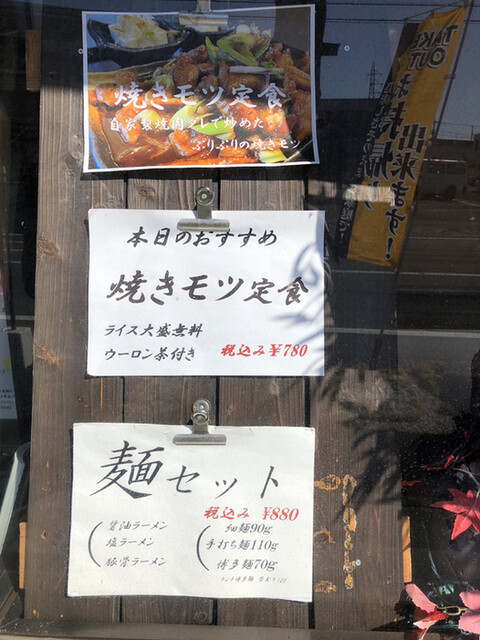 焼きモツ定食
自家製焼肉ダレで炒めた
ぷりぷりの焼きモツ
本日のおすすめ
焼きモツ定食
ライス大盛無料
ウーロン茶付き 税込み¥780
麺セット
税込み ¥880
醤油ラーメン
塩ラーメン
豚骨ラーメン
細麺90g
手打ち麺110g
博多麺70g
TAKE OUT
お持帰り
出来ます!